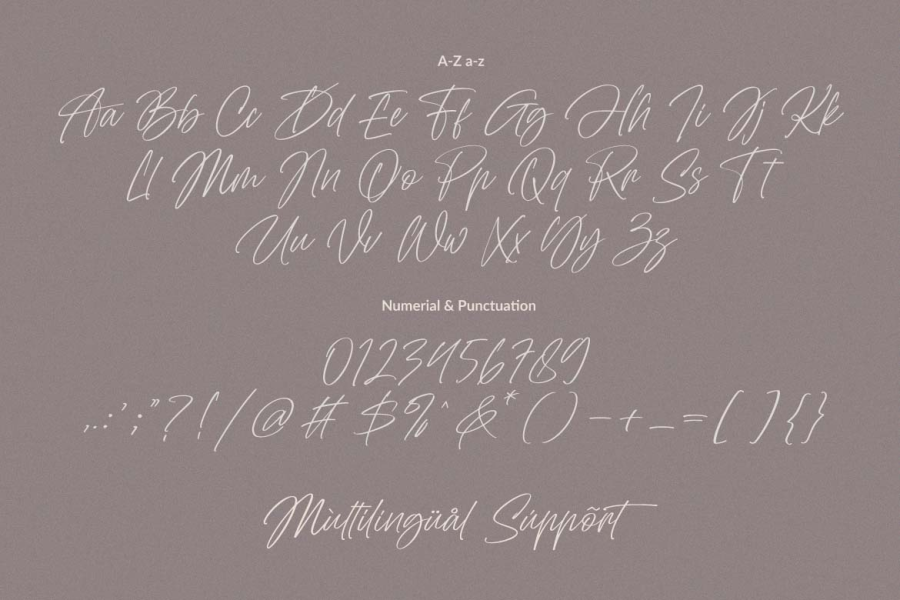 A-Z a-z
Aa Bb Cc Dd Ee Ff Gg Hh Ii Jj Kk
Ll Mm Nn Oo Pp Qq Rr Ss Tt
Uu Vv Ww Xx Yy Zz
Numerial & Punctuation
0123456789
,.:';"?!/@#$%^&*()-+_=[]{}
Mùltilingüål Súppõrt